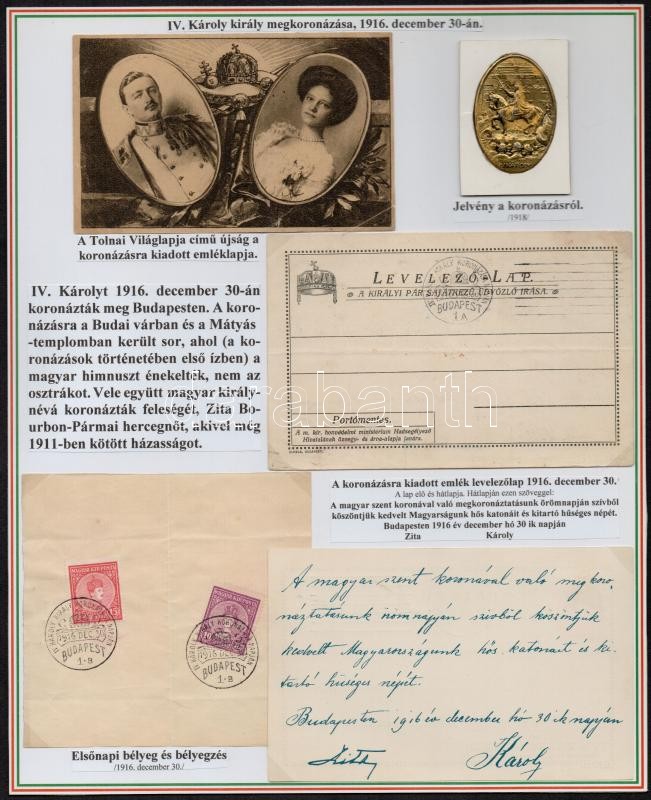 IV. Károly király megkoronázása, 1916. december 30-án.
A Tolnai Világlapja című újság a
koronázásra kiadott emléklapja.
Jelvény a koronázásról.
/1918/
IV. Károlyt 1916. december 30-án
koronázták meg Budapesten. A koro-
názásra a Budai várban és a Mátyás
-templomban került sor, ahol (a ko-
ronázások történetében első ízben) a
magyar himnuszt énekelték, nem az
osztrákot. Vele együtt magyar király-
névá koronázták feleségét, Zita Bo-
urbon-Pármai hercegnőt, akivel még
1911-ben kötött házasságot.
LEVELEZŐ LAP.
A KIRÁLYI PÁR SAJÁTKEZŰ ÜDVÖZLŐ IRÁSA.
BUDAPEST
1 A
Portómentes.
A m. kir. honvédelmi ministerium Hadsegélyező
Hivatalának özvegy- és árva-alapja javára.
A koronázásra kiadott emlék levelezőlap 1916. december 30.
A lap elő és hátlapja. Hátlapján ezen szöveggel:
A magyar szent koronával való megkoronáztatásunk örömnapján szívből
köszöntjük kedvelt Magyarságunk hős katonáit és kitartó hűséges népét.
Budapesten 1916 év december hó 30 ik napján
Zita Károly
MAGYAR KIR. POSTA
1916 DEC
BUDAPEST
1-B
1916 DEC
BUDAPEST
1-B
Elsőnapi bélyeg és bélyegzés
/1916. december 30./
A magyar szent koronával való megkoro-
náztatásunk örömnapján szivből köszöntjük
kedvelt Magyarországunk hős katonáit és ki-
tartó hűséges népét.
Budapesten 1916 év december hó 30 ik napján
Zita Károly
darabanth